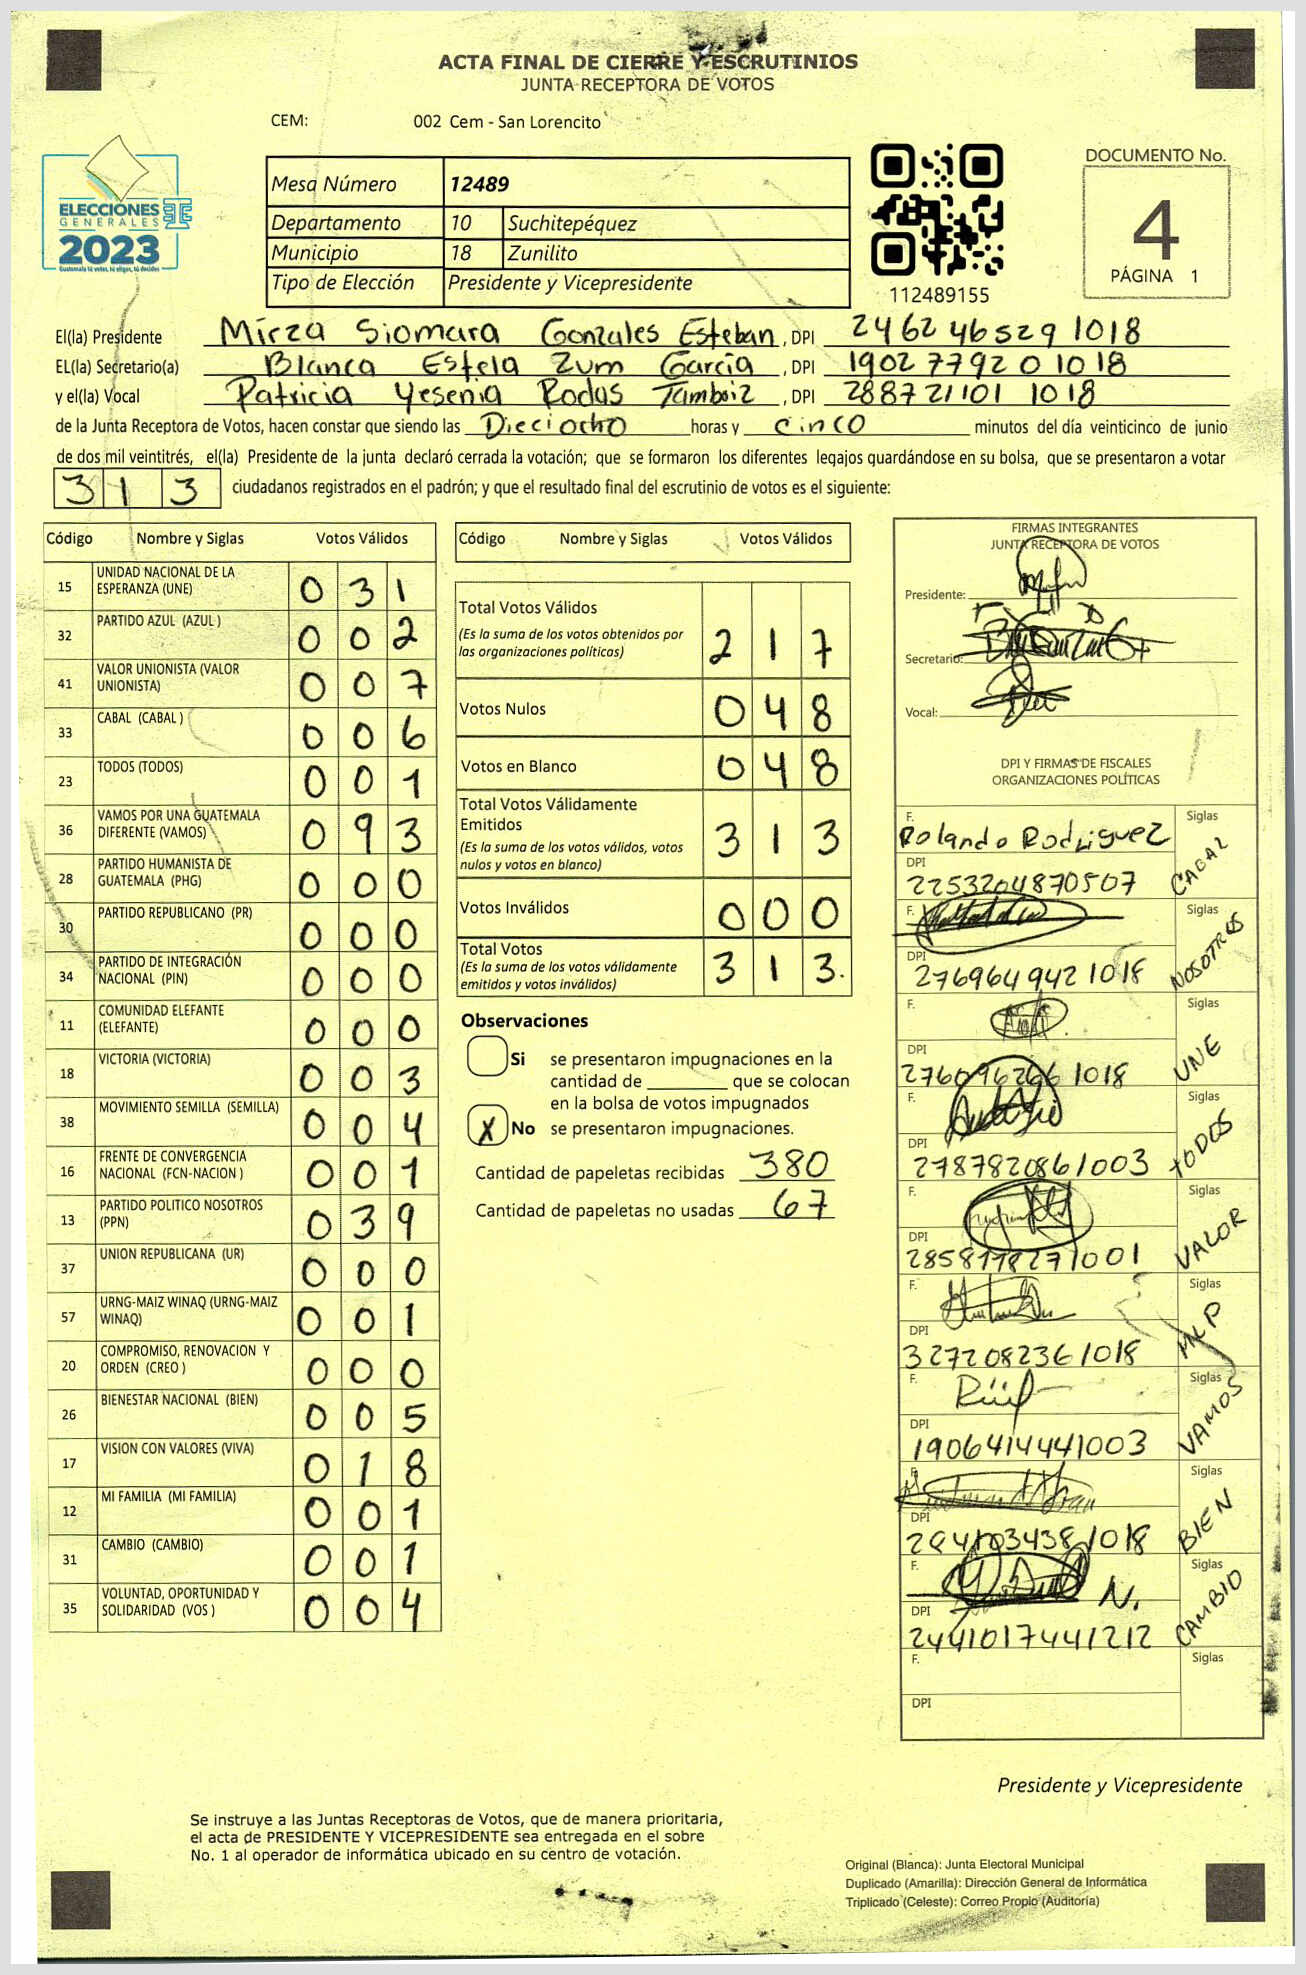 ACTA FINAL DE CIERRE Y ESCRUTINIOS
JUNTA RECEPTORA DE VOTOS
CEM: 002 Cem - San Lorencito
ELECCIONES
GENERALES
2023
Guatemala tú votas, tú eliges, tú decides
Mesa Número 12489
Departamento 10 Suchitepéquez
Municipio 18 Zunilito
Tipo de Elección Presidente y Vicepresidente
112489155
DOCUMENTO No.
4
PÁGINA 1
El(la) Presidente Mirza Siomara Gonzales Esteban, DPI 2462465291018
EL(la) Secretario(a) Blanca Estela Zum García, DPI 1902779201018
y el(la) Vocal Patricia Yesenia Rodas Tamboiz, DPI 2887211011018
de la Junta Receptora de Votos, hacen constar que siendo las Dieciocho horas y cinco minutos del día veinticinco de junio
de dos mil veintitrés, el(la) Presidente de la junta declaró cerrada la votación; que se formaron los diferentes legajos guardándose en su bolsa, que se presentaron a votar
313 ciudadanos registrados en el padrón; y que el resultado final del escrutinio de votos es el siguiente:
Código Nombre y Siglas Votos Válidos
15 UNIDAD NACIONAL DE LA ESPERANZA (UNE) 031
32 PARTIDO AZUL (AZUL ) 002
41 VALOR UNIONISTA (VALOR UNIONISTA) 007
33 CABAL (CABAL ) 006
23 TODOS (TODOS) 001
36 VAMOS POR UNA GUATEMALA DIFERENTE (VAMOS) 093
28 PARTIDO HUMANISTA DE GUATEMALA (PHG) 000
30 PARTIDO REPUBLICANO (PR) 000
34 PARTIDO DE INTEGRACIÓN NACIONAL (PIN) 000
11 COMUNIDAD ELEFANTE (ELEFANTE) 000
18 VICTORIA (VICTORIA) 003
38 MOVIMIENTO SEMILLA (SEMILLA) 004
16 FRENTE DE CONVERGENCIA NACIONAL (FCN-NACION ) 001
13 PARTIDO POLITICO NOSOTROS (PPN) 039
37 UNION REPUBLICANA (UR) 000
57 URNG-MAIZ WINAQ (URNG-MAIZ WINAQ) 001
20 COMPROMISO, RENOVACION Y ORDEN (CREO ) 000
26 BIENESTAR NACIONAL (BIEN) 005
17 VISION CON VALORES (VIVA) 018
12 MI FAMILIA (MI FAMILIA) 001
31 CAMBIO (CAMBIO) 001
35 VOLUNTAD, OPORTUNIDAD Y SOLIDARIDAD (VOS ) 004
Código Nombre y Siglas Votos Válidos
Total Votos Válidos 217
(Es la suma de los votos obtenidos por
las organizaciones políticas)
Votos Nulos 048
Votos en Blanco 048
Total Votos Válidamente
Emitidos 313
(Es la suma de los votos válidos, votos
nulos y votos en blanco)
Votos Inválidos 000
Total Votos 313.
(Es la suma de los votos válidamente
emitidos y votos inválidos)
Observaciones
Si se presentaron impugnaciones en la
cantidad de ________ que se colocan
en la bolsa de votos impugnados
X No se presentaron impugnaciones.
Cantidad de papeletas recibidas 380
Cantidad de papeletas no usadas 67
FIRMAS INTEGRANTES
JUNTA RECEPTORA DE VOTOS
Presidente:
Secretario:
Vocal:
DPI Y FIRMAS DE FISCALES
ORGANIZACIONES POLÍTICAS
F. Rolando Rodriguez Siglas CABAL
DPI 2253204870507
F. Siglas NOSOTROS
DPI 2769649421018
F. Siglas UNE
DPI 2760962661018
F. Siglas TODOS
DPI 2787820861003
F. Siglas VALOR
DPI
F. Siglas MLP
DPI 3272082361018
F. Siglas VAMOS
DPI 1906414441003
F. Siglas BIEN
DPI
F. N. Siglas CAMBIO
DPI 2441017441212
F. Siglas
DPI
Presidente y Vicepresidente
Se instruye a las Juntas Receptoras de Votos, que de manera prioritaria,
el acta de PRESIDENTE Y VICEPRESIDENTE sea entregada en el sobre
No. 1 al operador de informática ubicado en su centro de votación.
Original (Blanca): Junta Electoral Municipal
Duplicado (Amarilla): Dirección General de Informática
Triplicado (Celeste): Correo Propio (Auditoría)